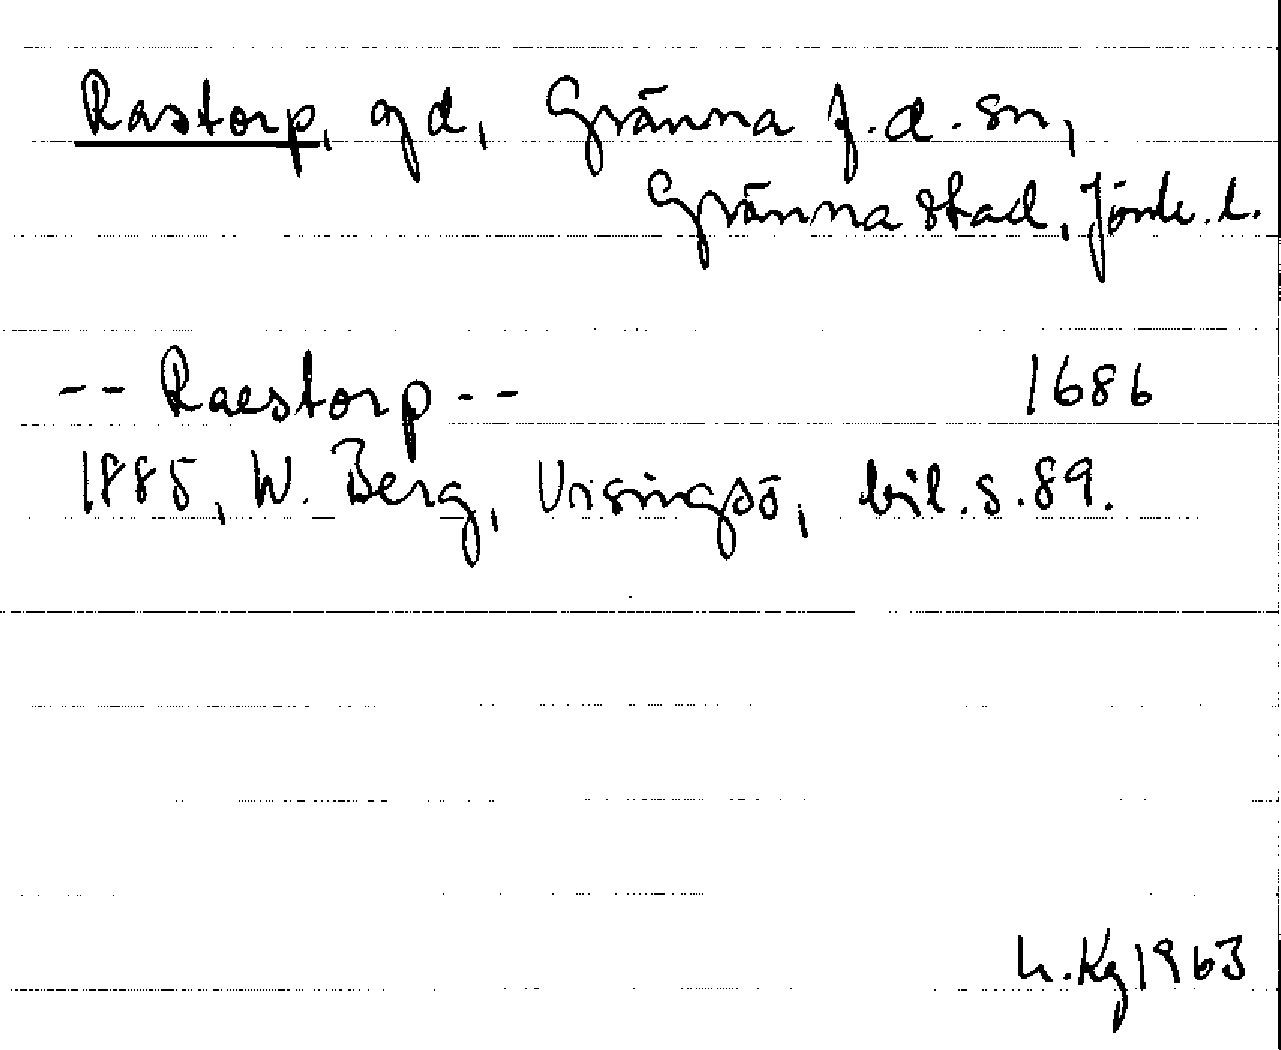 Rastorp, gd, Gränna f.d. sn,
Gränna stad, Jönk. l.
-- Raestorp -- 1686
1885, W. Berg, Visingsö, bil. s. 89.
h. Kg 1963